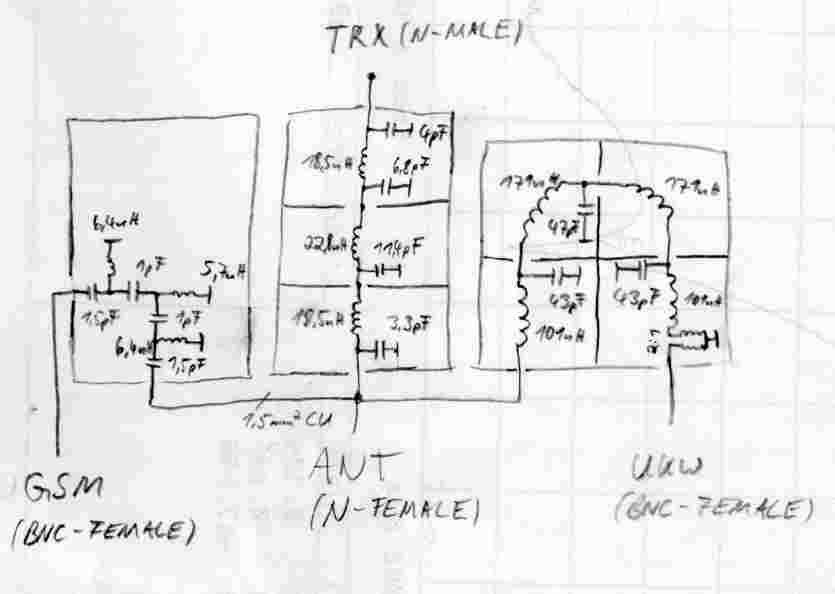 TRX (N-MALE)
4pF
18,5nH
6,8pF
22,8nH
11,4pF
18,5nH
3,3pF
6,4nH
1pF
5,7nH
1,5pF
1pF
6,4nH
1,5pF
179nH
179nH
47pF
43pF
43pF
101nH
101nH
1,5mm² CU
GSM
(BNC-FEMALE)
ANT
(N-FEMALE)
UKW
(BNC-FEMALE)